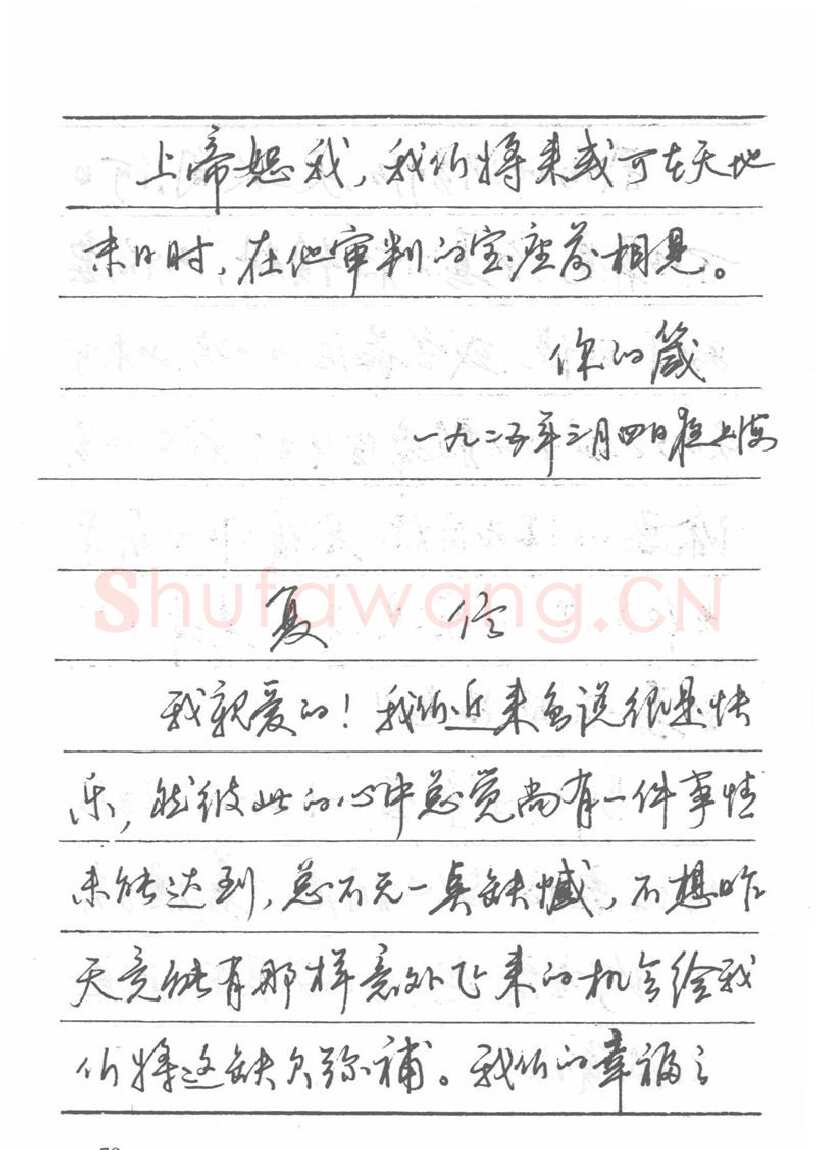 上帝恕我，我们将来或可在天地
末日时，在他审判的宝座前相见。
你的箴
一九二五年三月四日在上海
Shufawang.CN
复 信
我亲爱的！我们近来虽说很是快
乐，然彼此的心中总觉尚有一件事情
未能达到，总不无一点缺憾，不想昨
天竟能有那样意外飞来的机会给我
们将这缺欠弥补。我们的幸福之